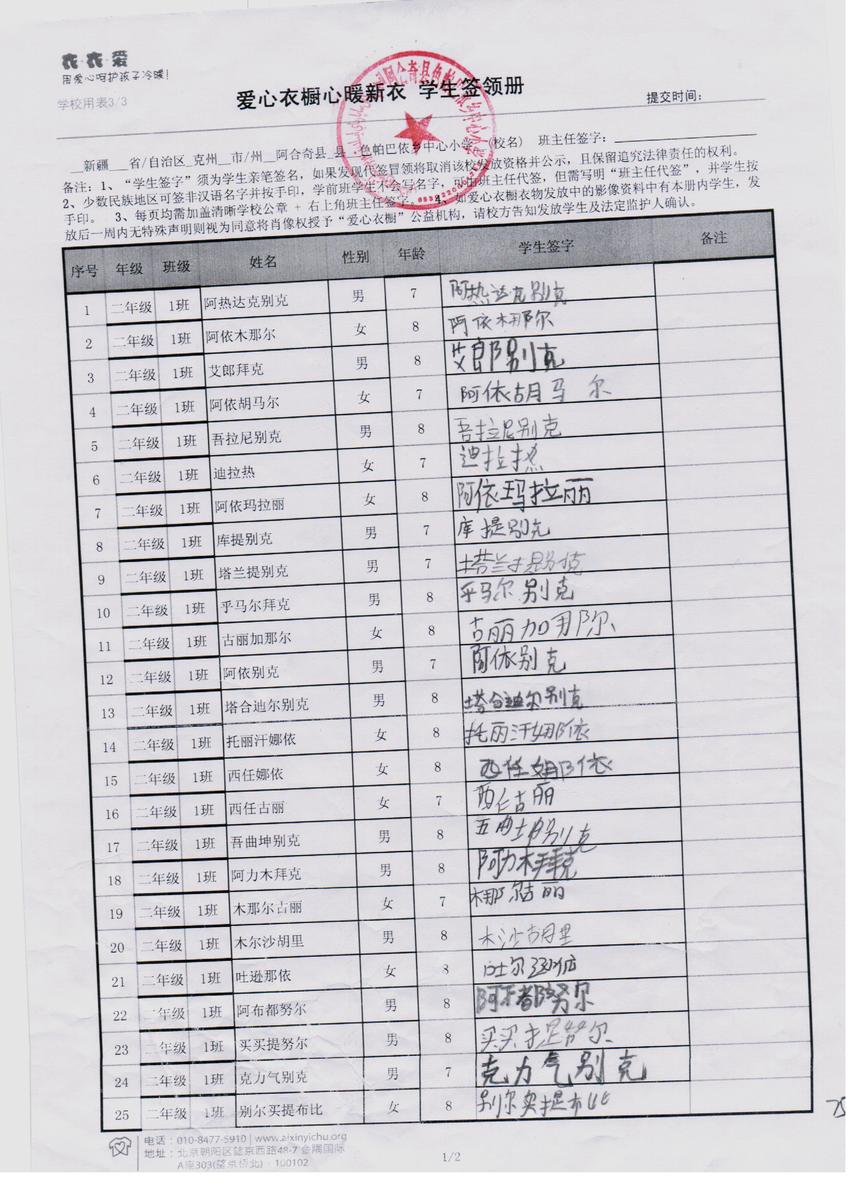 衣·衣·爱
用爱心呵护孩子冷暖!
学校用表3/3
爱心衣橱心暖新衣 学生签领册
提交时间:
新疆 省/自治区 克州 市/州 阿合奇县 县 色帕巴依乡中心小学 (校名) 班主任签字:
备注:1、“学生签字”须为学生亲笔签名,如果发现代签冒领将取消该校发放资格并公示,且保留追究法律责任的权利。
2、少数民族地区可签非汉语名字并按手印,学前班学生不会写名字,可由班主任代签,但需写明“班主任代签”,并学生按
手印。 3、每页均需加盖清晰学校公章 + 右上角班主任签字。 4、如爱心衣橱衣物发放中的影像资料中有本册内学生,发
放后一周内无特殊声明则视为同意将肖像权授予“爱心衣橱”公益机构,请校方告知发放学生及法定监护人确认。
序号 年级 班级 姓名 性别 年龄 学生签字 备注
1 二年级 1班 阿热达克别克 男 7 阿热达克别克
2 二年级 1班 阿依木那尔 女 8 阿依木那尔
3 二年级 1班 艾郎拜克 男 8 艾郎别克
4 二年级 1班 阿依胡马尔 女 7 阿依胡马尔
5 二年级 1班 吾拉尼别克 男 8 吾拉尼别克
6 二年级 1班 迪拉热 女 7 迪拉热
7 二年级 1班 阿依玛拉丽 女 8 阿依玛拉丽
8 二年级 1班 库提别克 男 7 库提别克
9 二年级 1班 塔兰提别克 男 7 塔兰提别克
10 二年级 1班 乎马尔拜克 男 8 乎马尔别克
11 二年级 1班 古丽加那尔 女 8 古丽加那尔
12 二年级 1班 阿依别克 男 7 阿依别克
13 二年级 1班 塔合迪尔别克 男 8 塔合迪尔别克
14 二年级 1班 托丽汗娜依 女 8 托丽汗娜依
15 二年级 1班 西任娜依 女 8 西任娜依
16 二年级 1班 西任古丽 女 7 西任古丽
17 二年级 1班 吾曲坤别克 男 8
18 二年级 1班 阿力木拜克 男 8 阿力木拜克
19 二年级 1班 木那尔古丽 女 7 木那尔古丽
20 二年级 1班 木尔沙胡里 男 8 木沙胡里
21 二年级 1班 吐逊那依 女 8
22 二年级 1班 阿布都努尔 男 8 阿布都努尔
23 二年级 1班 买买提努尔 男 8 买买提努尔
24 二年级 1班 克力气别克 男 7 克力气别克
25 二年级 1班 别尔买提布比 女 8 别尔买提布比
电话:010-8477-5910 | www.aixinyichu.org
地址:北京朝阳区望京西路48-7 金隅国际
A座303(望京桥北) · 100102
1/2